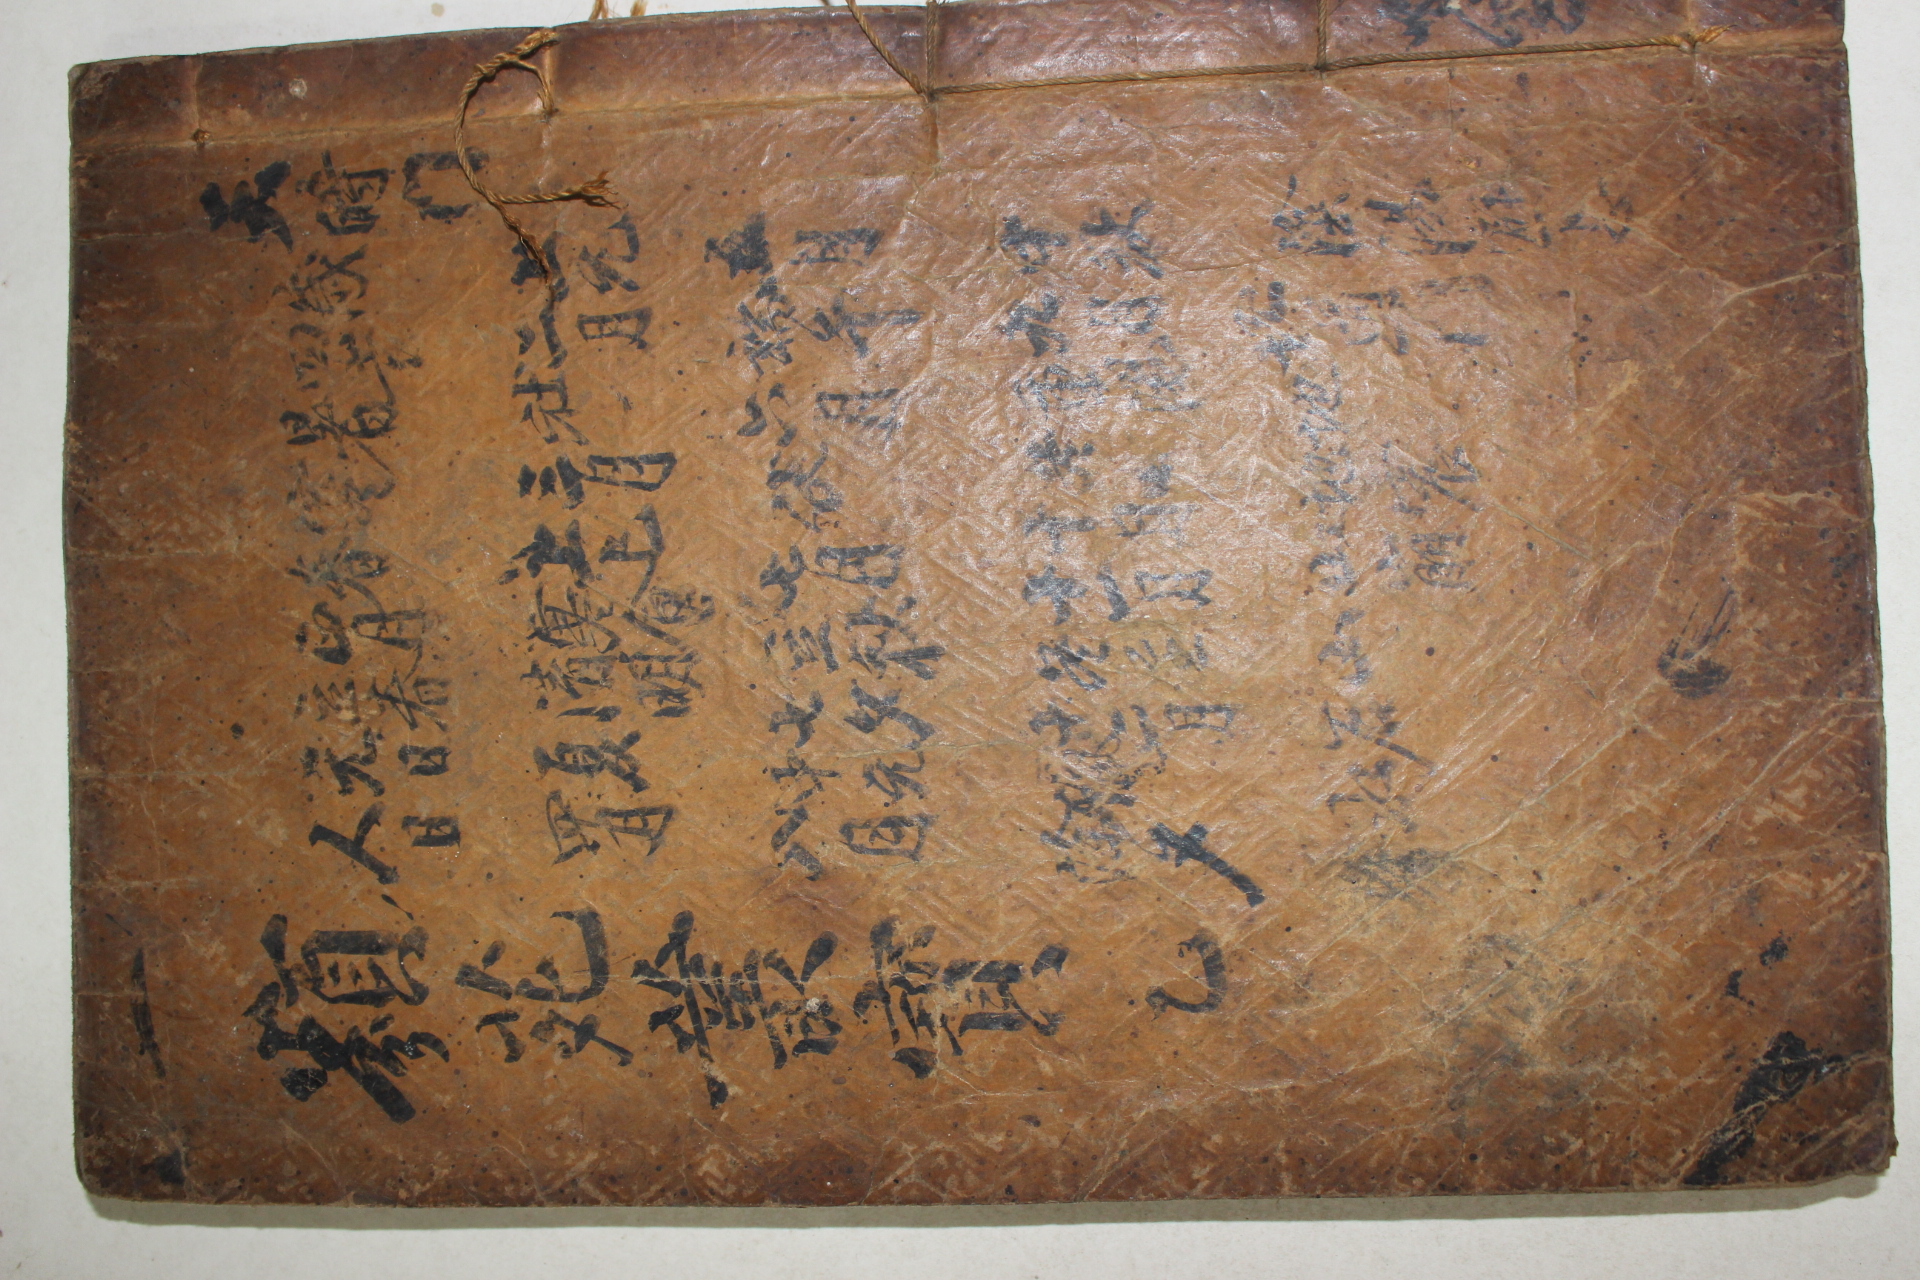 天時門
歲
四時
暑
寒
春
正月
立春
元日
人日
上元
二月
社
三月
上上
寒食
清明
夏
四月
五月
端午
六月
伏
七月
立秋
七夕
中元
八月
中秋
九月
重陽
冬
十月
十一月
冬至
十二月
臘
除夕
陰陽
地
地震
山崩
山
石
類苑叢寶 乙
一